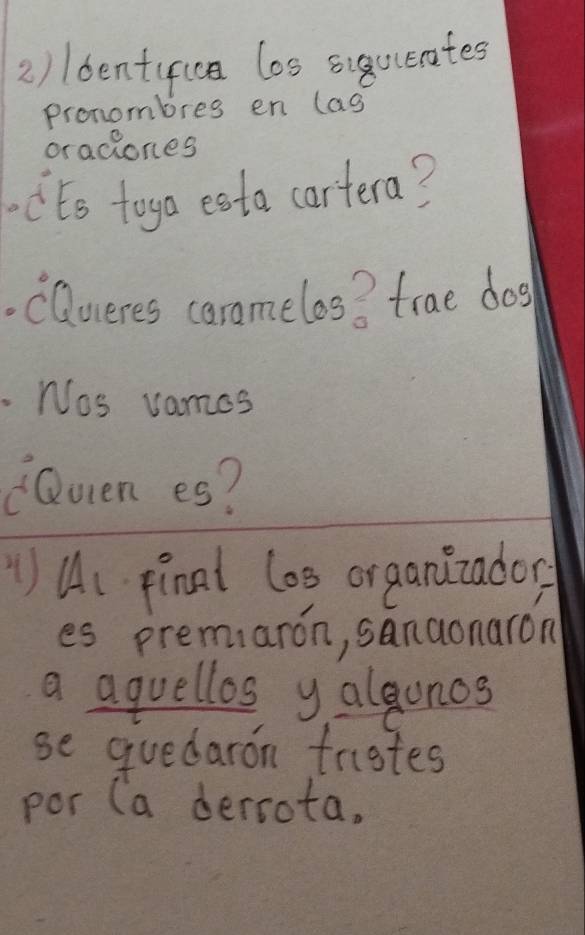 2) Identifica los siguientes
pronombres en las
oraciones
. ¿Es tuya esta cartera?
. ¿Quieres caramelos? trae dos
. Nos vamos
¿Quien es?
4) Al final los organizador-
es premiarón, sancionarón
a aquellos y algunos
se quedarón tristes
por la derrota.